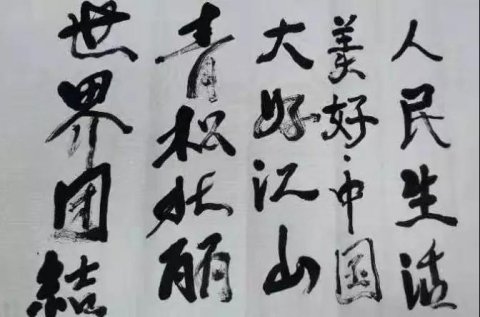 人民生活
美好中國
大好江山
青松 丽
世界团結